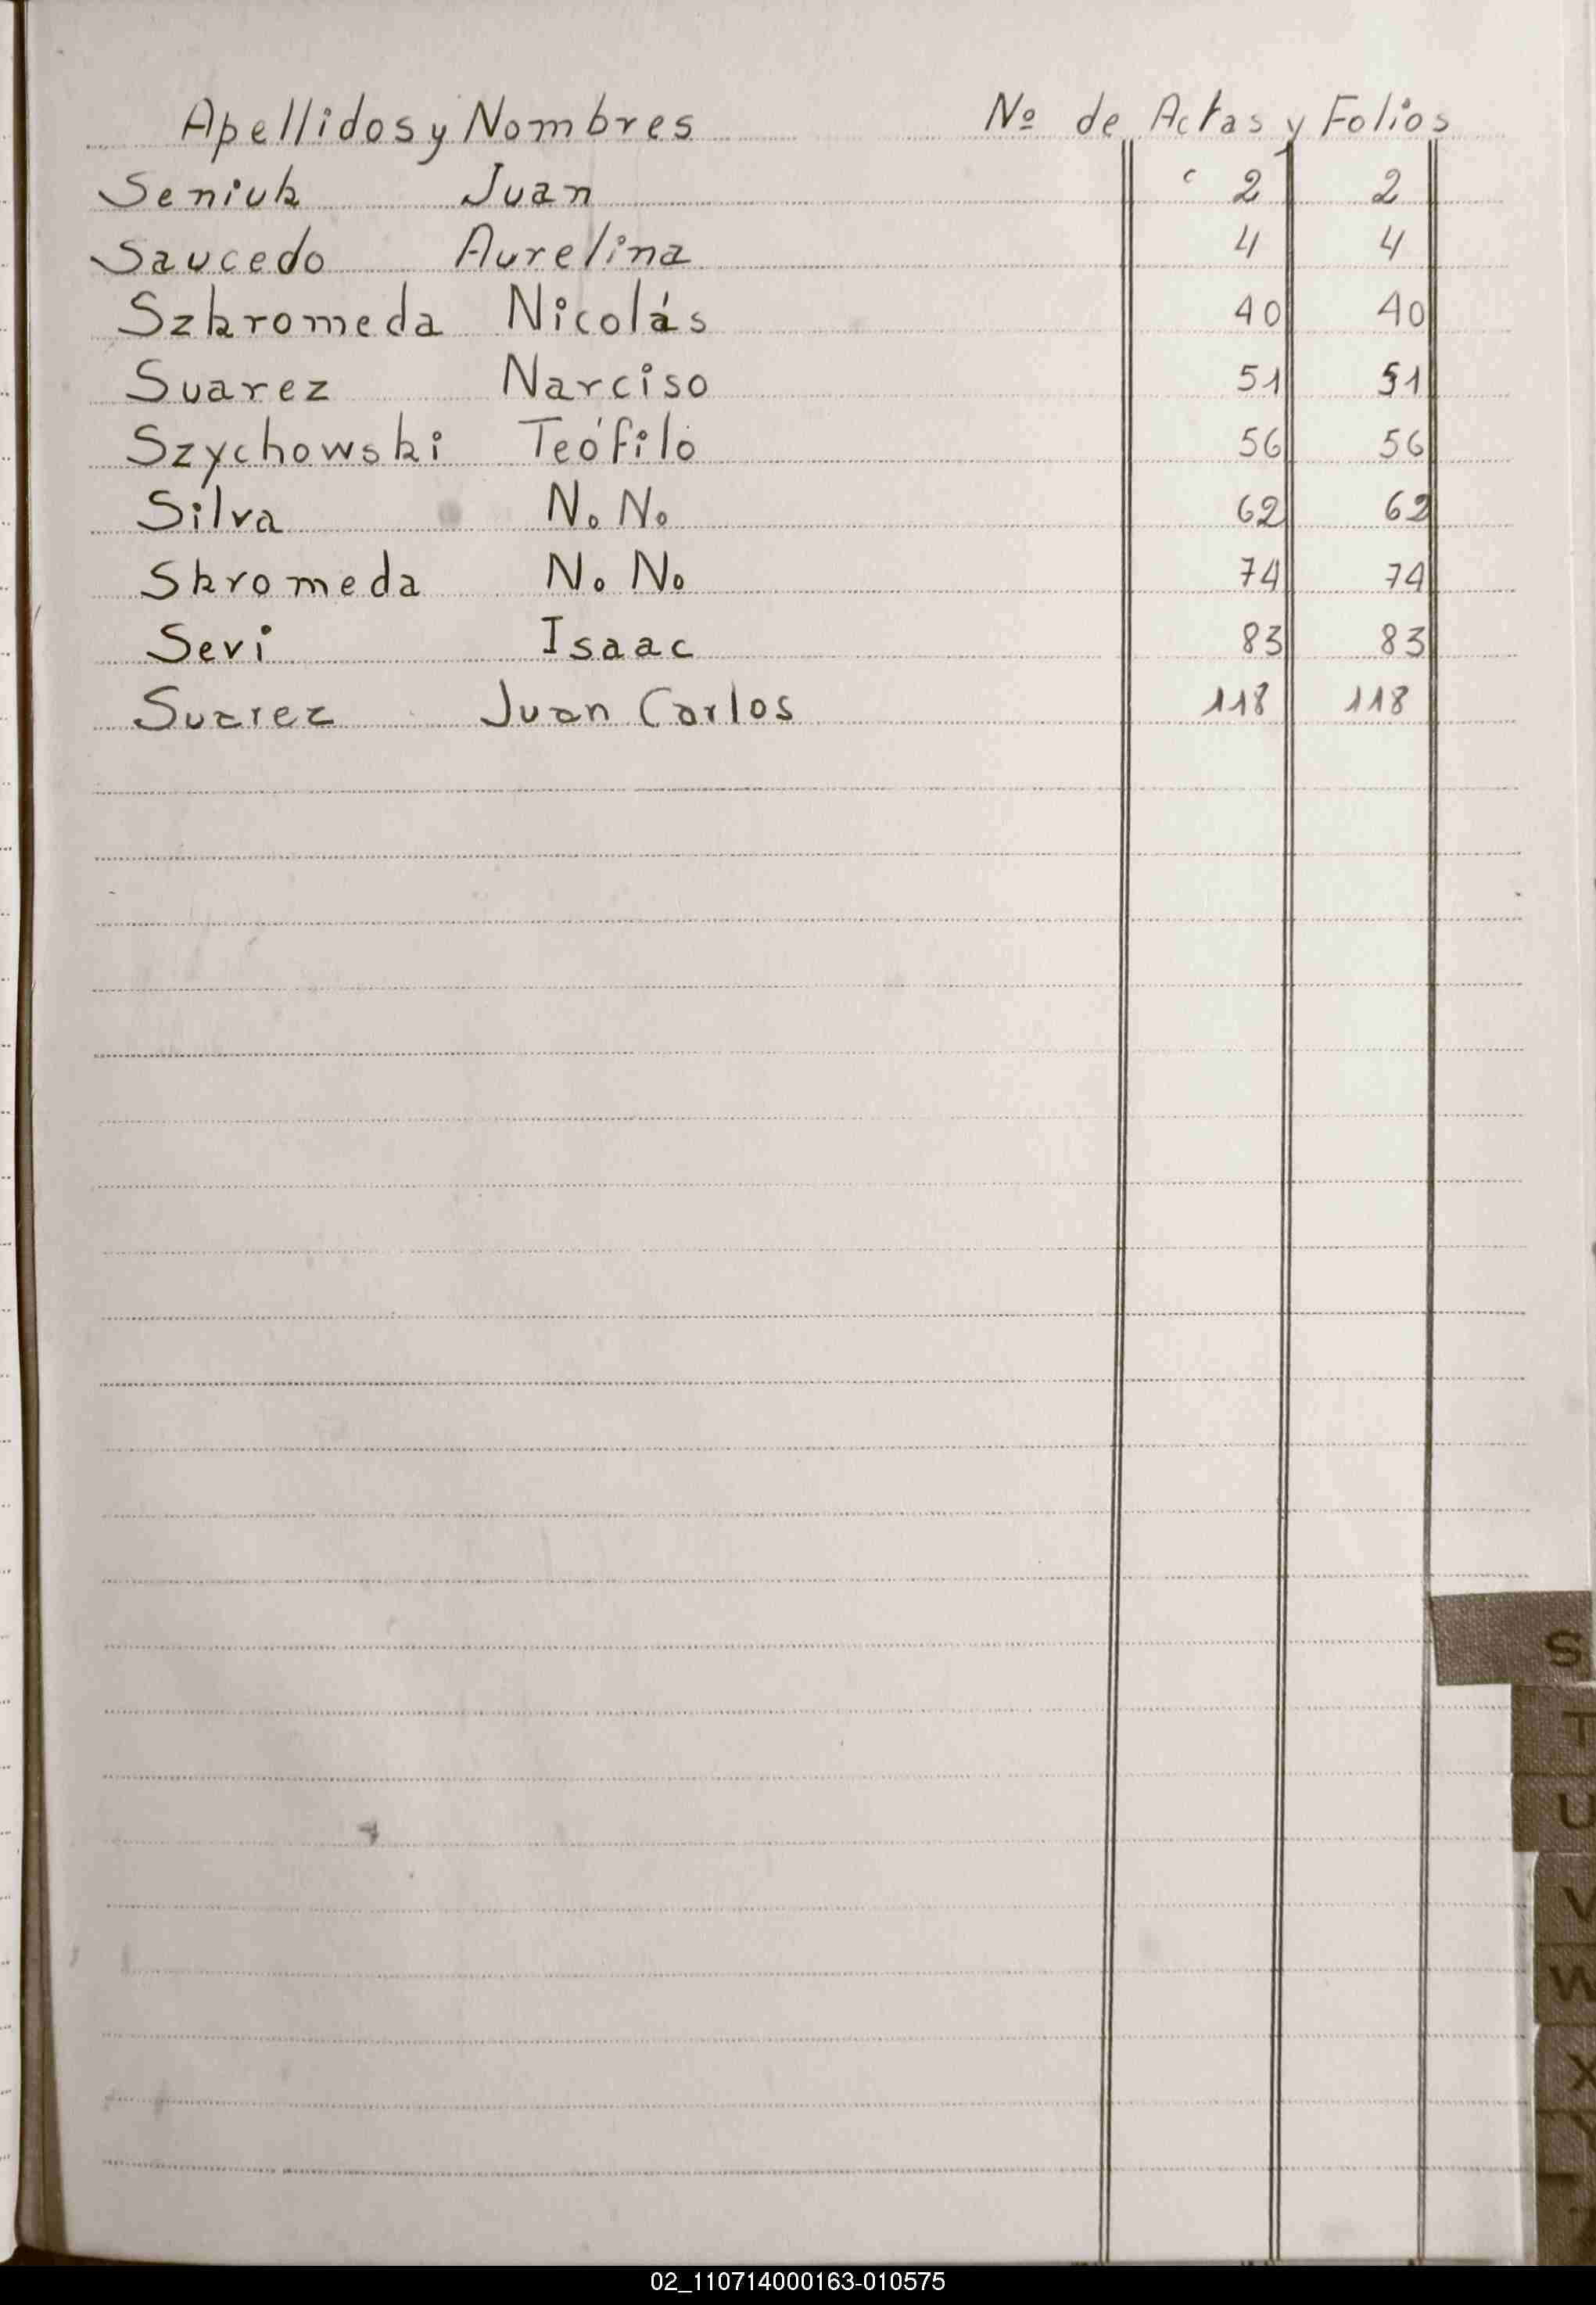 Apellidos y Nombres Nº de Actas y Folios
Seniuk Juan 2 2
Saucedo Aurelina 4 4
Szkromeda Nicolás 40 40
Suarez Narciso 51 51
Szychowski Teófilo 56 56
Silva N. N. 62 62
Skromeda N. N. 74 74
Sevi Isaac 83 83
Suarez Juan Carlos 118 118
S
T
U
V
W
X
Y
02_110714000163-010575